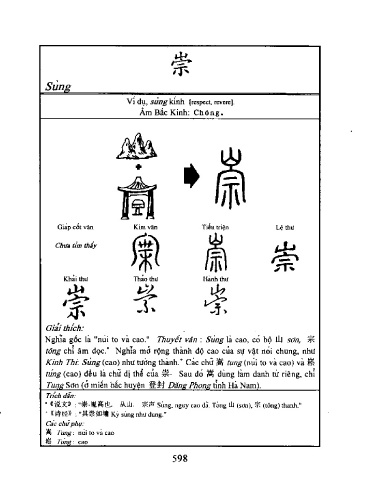 崇
Sùng
Ví dụ, sùng kính [respect, revere].
Âm Bắc Kinh: Chóng.
Giáp cốt văn Kim văn Tiểu triện Lệ thư
Chưa tìm thấy
Khải thư Thảo thư Hành thư
Giải thích:
Nghĩa gốc là "núi to và cao." Thuyết văn : Sùng là cao, có bộ 山 sơn, 宗
tông chỉ âm đọc." Nghĩa mở rộng thành độ cao của sự vật nói chung, như
Kinh Thi: Sùng (cao) như tường thành." Các chữ 嵩 tung (núi to và cao) và 崈
tùng (cao) đều là chữ dị thể của 崇. Sau đó 嵩 dùng làm danh từ riêng, chỉ
Tung Sơn (ở miền bắc huyện 登封 Đăng Phong tỉnh Hà Nam).
Trích dẫn:
"《说文》: "崇,嵬高也. 从山. 宗声 Sùng, nguy cao dã. Tòng 山 (sơn), 宗 (tông) thanh."
"《诗经》: "其崇如墉 Kỳ sùng như dung."
Các chữ phụ:
嵩 Tung: núi to và cao
崈 Tùng: cao
598